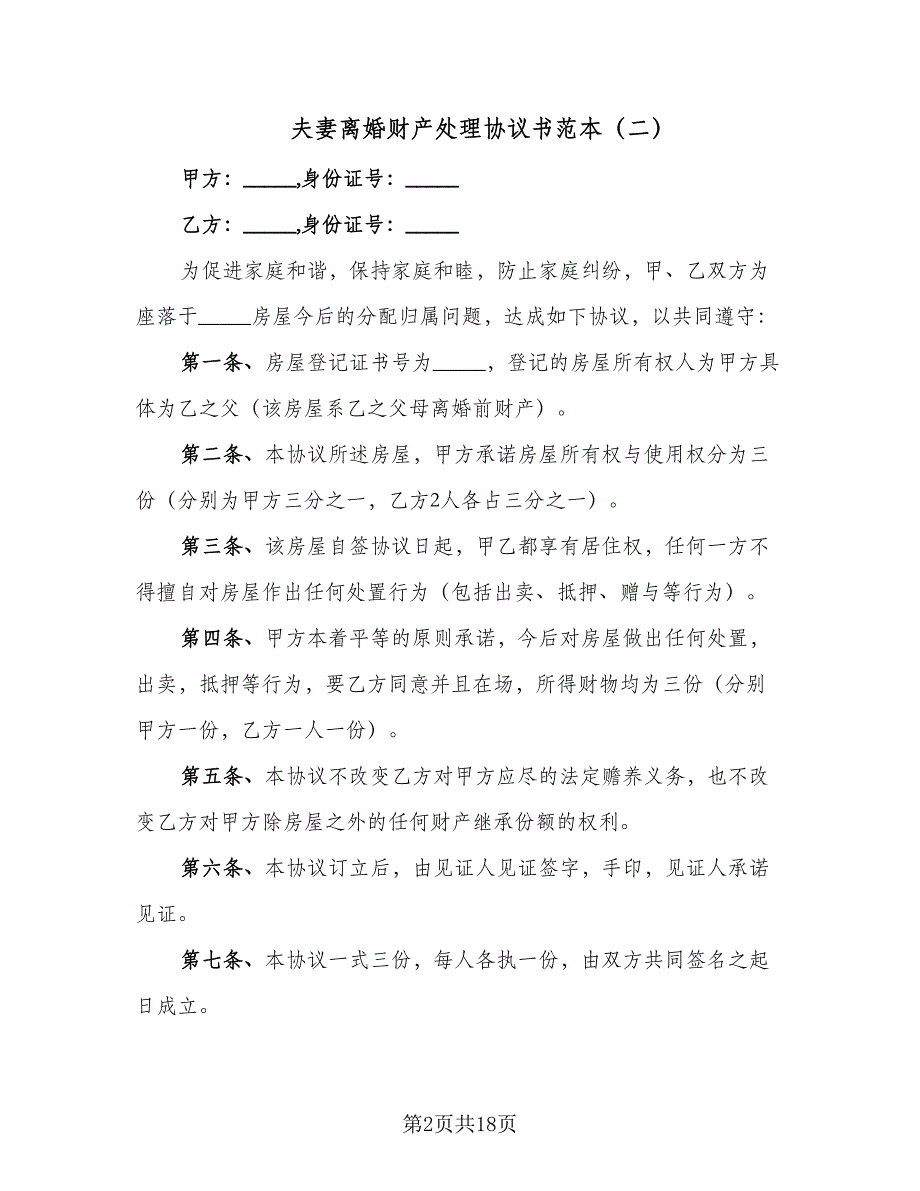 夫妻离婚财产处理协议书范本（二）
甲方：_____,身份证号：_____
乙方：_____,身份证号：_____
为促进家庭和谐，保持家庭和睦，防止家庭纠纷，甲、乙双方为
座落于_____房屋今后的分配归属问题，达成如下协议，以共同遵守：
第一条、房屋登记证书号为_____，登记的房屋所有权人为甲方具
体为乙之父（该房屋系乙之父母离婚前财产）。
第二条、本协议所述房屋，甲方承诺房屋所有权与使用权分为三
份（分别为甲方三分之一，乙方2人各占三分之一）。
第三条、该房屋自签协议日起，甲乙都享有居住权，任何一方不
得擅自对房屋作出任何处置行为（包括出卖、抵押、赠与等行为）。
第四条、甲方本着平等的原则承诺，今后对房屋做出任何处置，
出卖，抵押等行为，要乙方同意并且在场，所得财物均为三份（分别
甲方一份，乙方一人一份）。
第五条、本协议不改变乙方对甲方应尽的法定赡养义务，也不改
变乙方对甲方除房屋之外的任何财产继承份额的权利。
第六条、本协议订立后，由见证人见证签字，手印，见证人承诺
见证。
第七条、本协议一式三份，每人各执一份，由双方共同签名之起
日成立。
第2页共18页